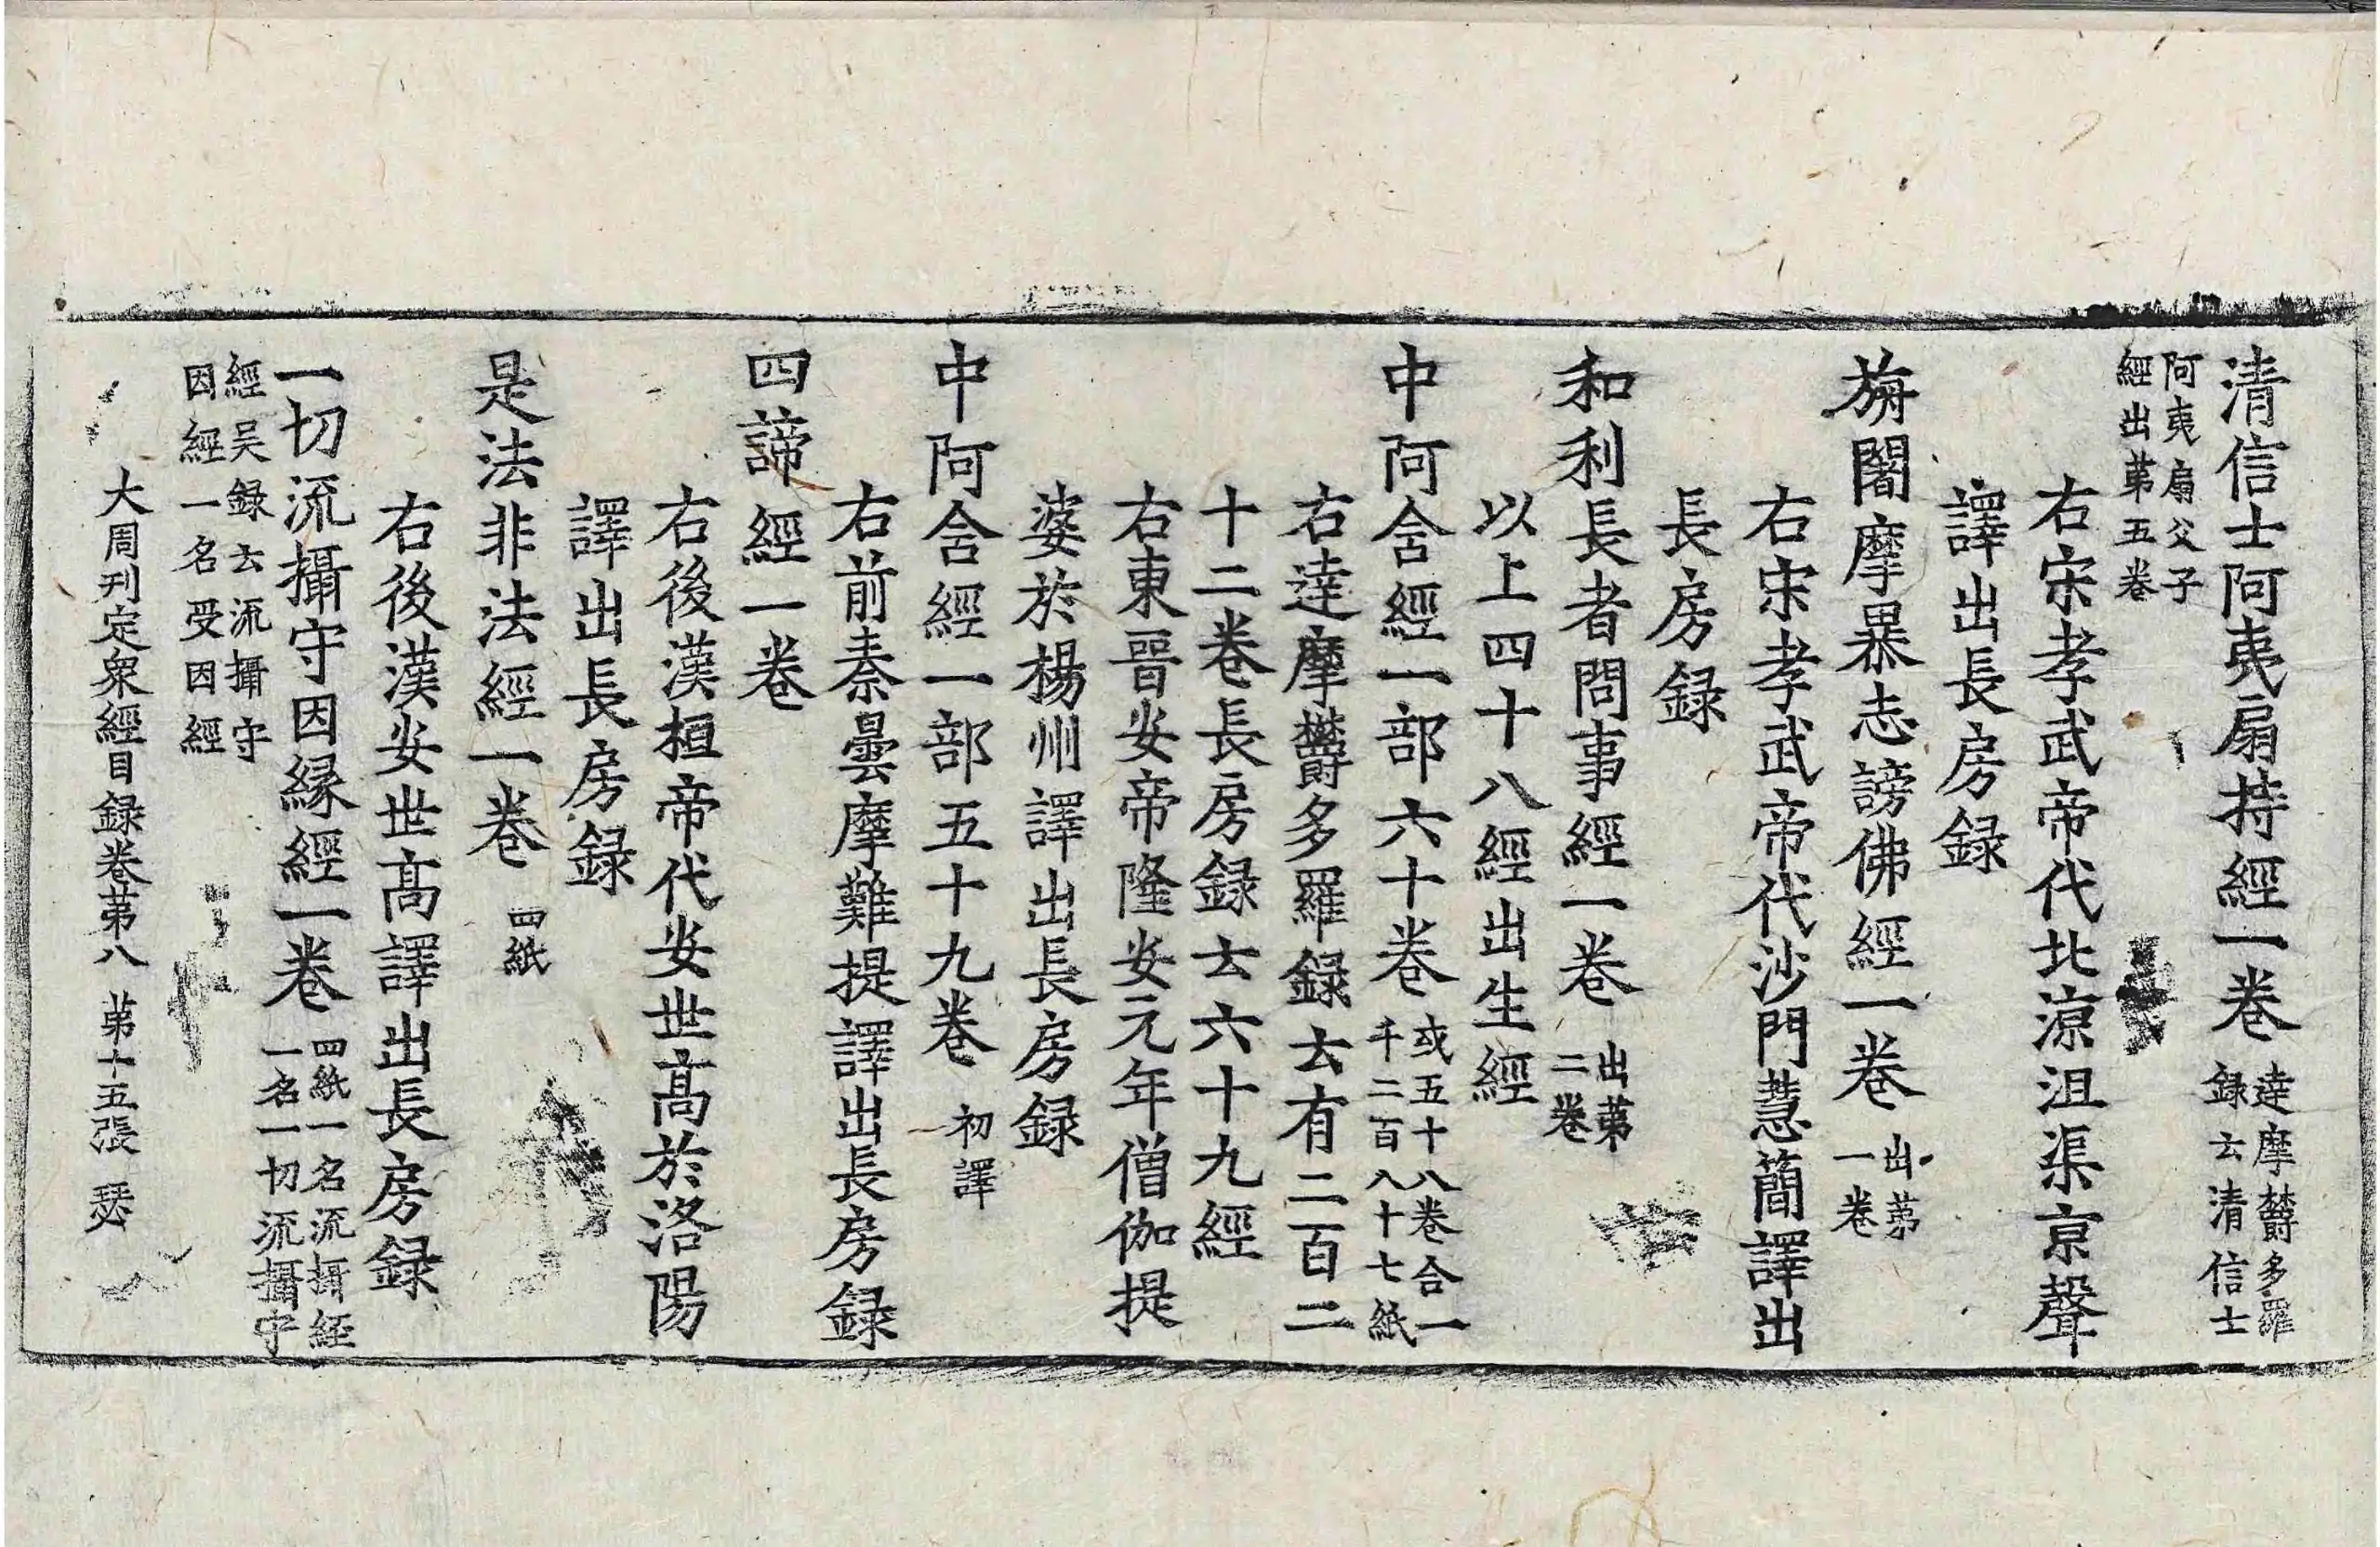 清信士阿夷扇持經一卷 達摩欝多羅
錄云清信士
阿夷扇父子
經出苐五卷
右宋孝武帝代北涼沮渠京聲
譯出長房録
旃闍摩暴志謗佛經一卷 出苐
一卷
右宋孝武帝代沙門慧簡譯出
長房録
和利長者問事經一卷 出苐
二卷
以上四十八經出生經
中阿含經一部六十卷 或五十八卷合一
千二百八十七紙
右達摩欝多羅録云有二百二
十二卷長房録云六十九經
右東晉安帝隆安元年僧伽提
婆於楊州譯出長房録
中阿含經一部五十九卷 初譯
右前秦曇摩難提譯出長房録
四諦經一卷
右後漢桓帝代安世髙於洛陽
譯出長房録
是法非法經一卷 四紙
右後漢安世髙譯出長房録
一切流攝守因縁經一卷 四紙一名流攝經
一名一切流攝守
經吴録云流攝守
因經一名受因經
大周刊定衆經目録卷苐八 苐十五張 瑟